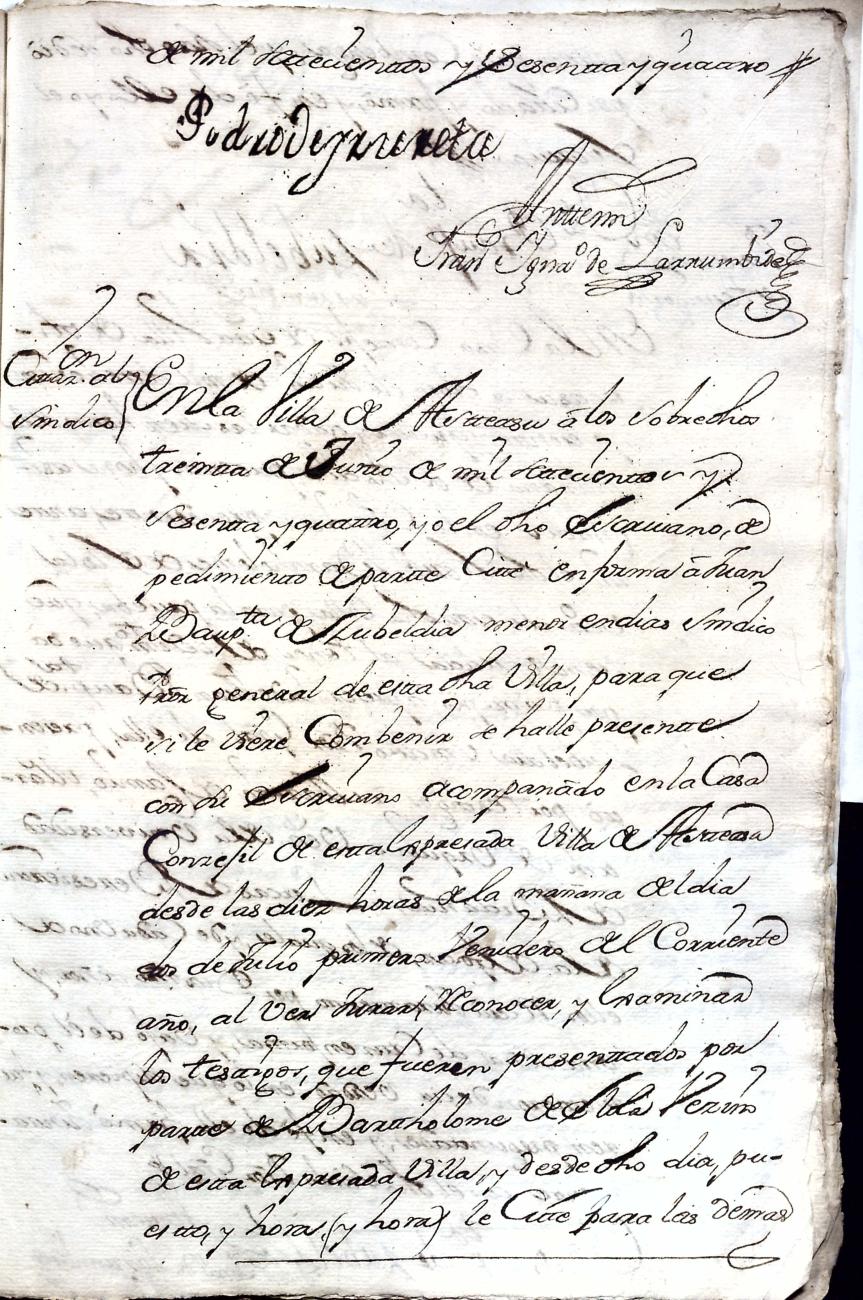 de mil settecientos y Sesentta y quattro
Pedro de yrrureta
Anttemi
Fran.co Ygna.o de Larrumbide
Cittaz.on al
Sindico
En la Villa de Asteasu a los sobredhos
treintta de Junio de mil settecientos y
Sesentta y quattro, yo el dho Escriuano, de
pedimiento de partte Citte en forma â Juan
Baup.ta de Zubeldia menor en dias Sindico
Pror general de esta dha Villa, para que
si le Viere Combenir se halle presentte
con su Escriuano acompañado en la Casa
Conzejil de esta expresada Villa de Asteasu
desde las diez horas de la mañana del dia
dos de Julio primero Venidero del Corriente
año, al Ver Jurar, reConocer, y examinar
los testigos, que fueren presenttados por
partte de Bartholome de Elola Vezino
de esta expresada Villa, y desde dho dia, pu-
estto, y hora, (y hora) le Citte para las demas